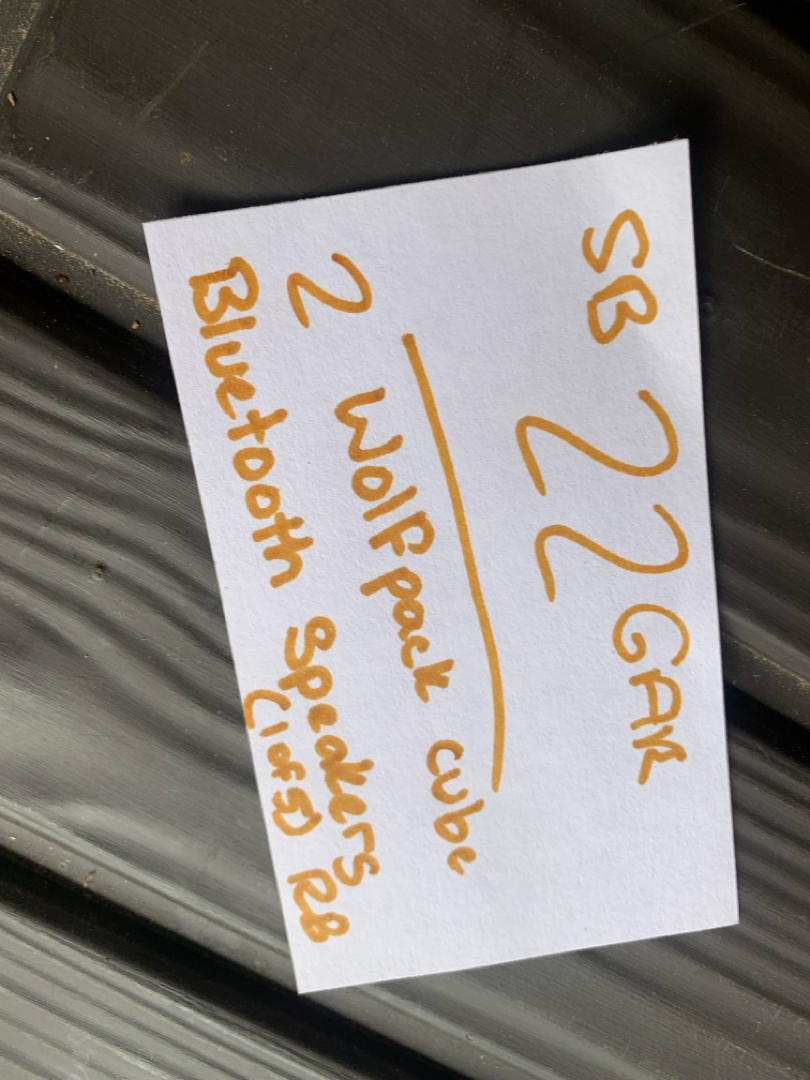 SB 22 GAR
2 Wolfpack cube
Bluetooth Speakers
(1 of 5) RB